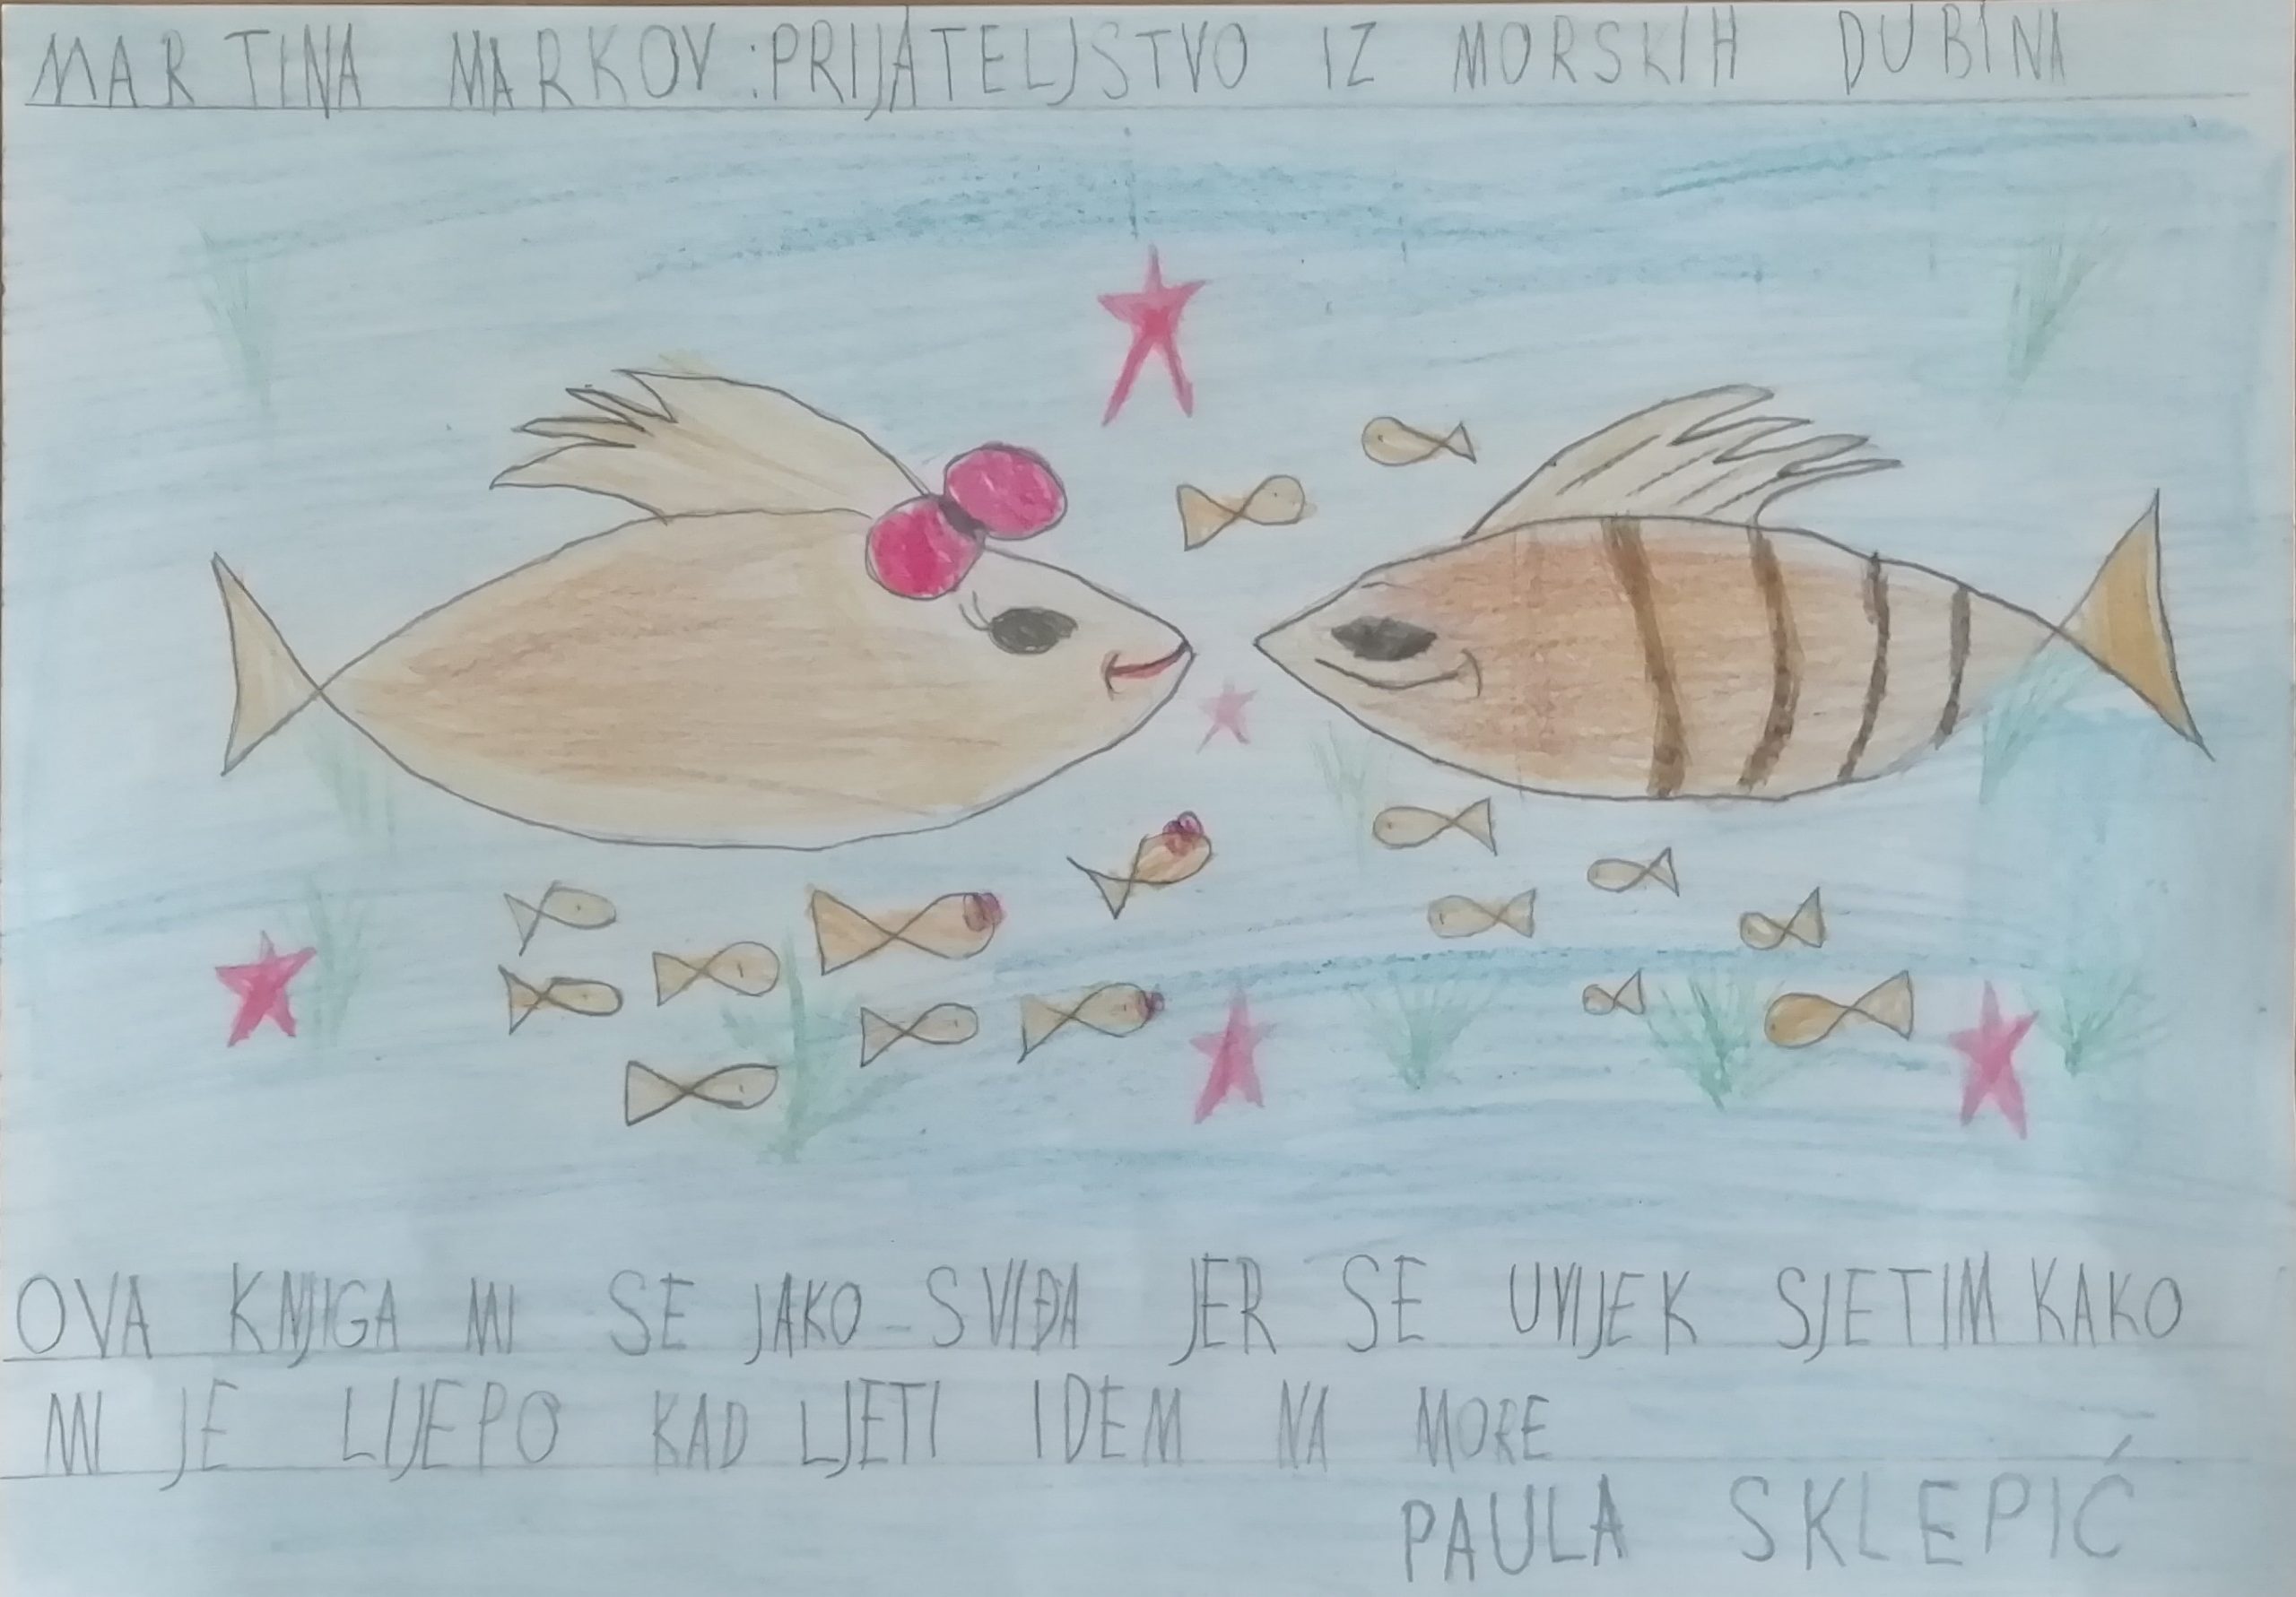 MARTINA MARKOV: PRIJATELJSTVO IZ MORSKIH DUBINA
OVA KNJIGA MI SE JAKO SVIĐA JER SE UVIJEK SJETIM KAKO
MI JE LIJEPO KAD LJETI IDEM NA MORE
PAULA SKLEPIĆ